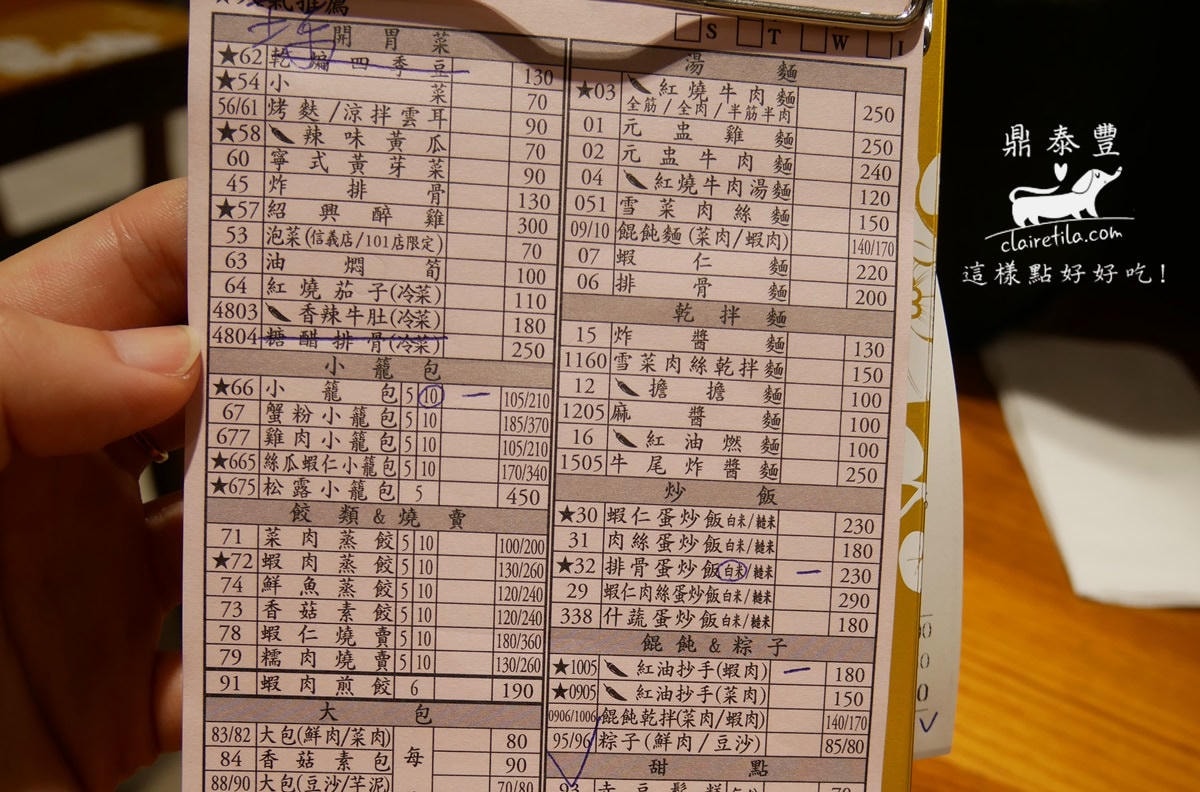 ★人氣推薦
□S □T □W □I
開胃菜
★62 乾煸四季豆 130
★54 小菜 70
56/61 烤麩/涼拌雲耳 90
★58 辣味黃瓜 70
60 寧式黃芽菜 90
45 炸排骨 130
★57 紹興醉雞 300
53 泡菜(信義店/101店限定) 70
63 油燜筍 100
64 紅燒茄子(冷菜) 110
4803 香辣牛肚(冷菜) 180
4804 糖醋排骨(冷菜) 250
小籠包
★66 小籠包 5 10 一 105/210
67 蟹粉小籠包 5 10 185/370
677 雞肉小籠包 5 10 105/210
★665 絲瓜蝦仁小籠包 5 10 170/340
★675 松露小籠包 5 450
餃類&燒賣
71 菜肉蒸餃 5 10 100/200
★72 蝦肉蒸餃 5 10 130/260
74 鮮魚蒸餃 5 10 120/240
73 香菇素餃 5 10 120/240
78 蝦仁燒賣 5 10 180/360
79 糯肉燒賣 5 10 130/260
91 蝦肉煎餃 6 190
大包
83/82 大包(鮮肉/菜肉) 80
84 香菇素包 每 90
88/90 大包(豆沙/芋泥) 70/80
湯麵
★03 紅燒牛肉麵 250
全筋/全肉/半筋半肉
01 元盅雞麵 250
02 元盅牛肉麵 240
04 紅燒牛肉湯麵 120
051 雪菜肉絲麵 150
09/10 餛飩麵(菜肉/蝦肉) 140/170
07 蝦仁麵 220
06 排骨麵 200
乾拌麵
15 炸醬麵 130
1160 雪菜肉絲乾拌麵 150
12 擔擔麵 100
1205 麻醬麵 100
16 紅油燃麵 100
1505 牛尾炸醬麵 250
炒飯
★30 蝦仁蛋炒飯白米/糙米 230
31 肉絲蛋炒飯白米/糙米 180
★32 排骨蛋炒飯白米/糙米 一 230
29 蝦仁肉絲蛋炒飯白米/糙米 290
338 什蔬蛋炒飯白米/糙米 180
餛飩&粽子
★1005 紅油抄手(蝦肉) 一 180
★0905 紅油抄手(菜肉) 150
0906/1006 餛飩乾拌(菜肉/蝦肉) 140/170
95/96 粽子(鮮肉/豆沙) 85/80
甜點
鼎泰豐
clairetila.com
這樣點好好吃!